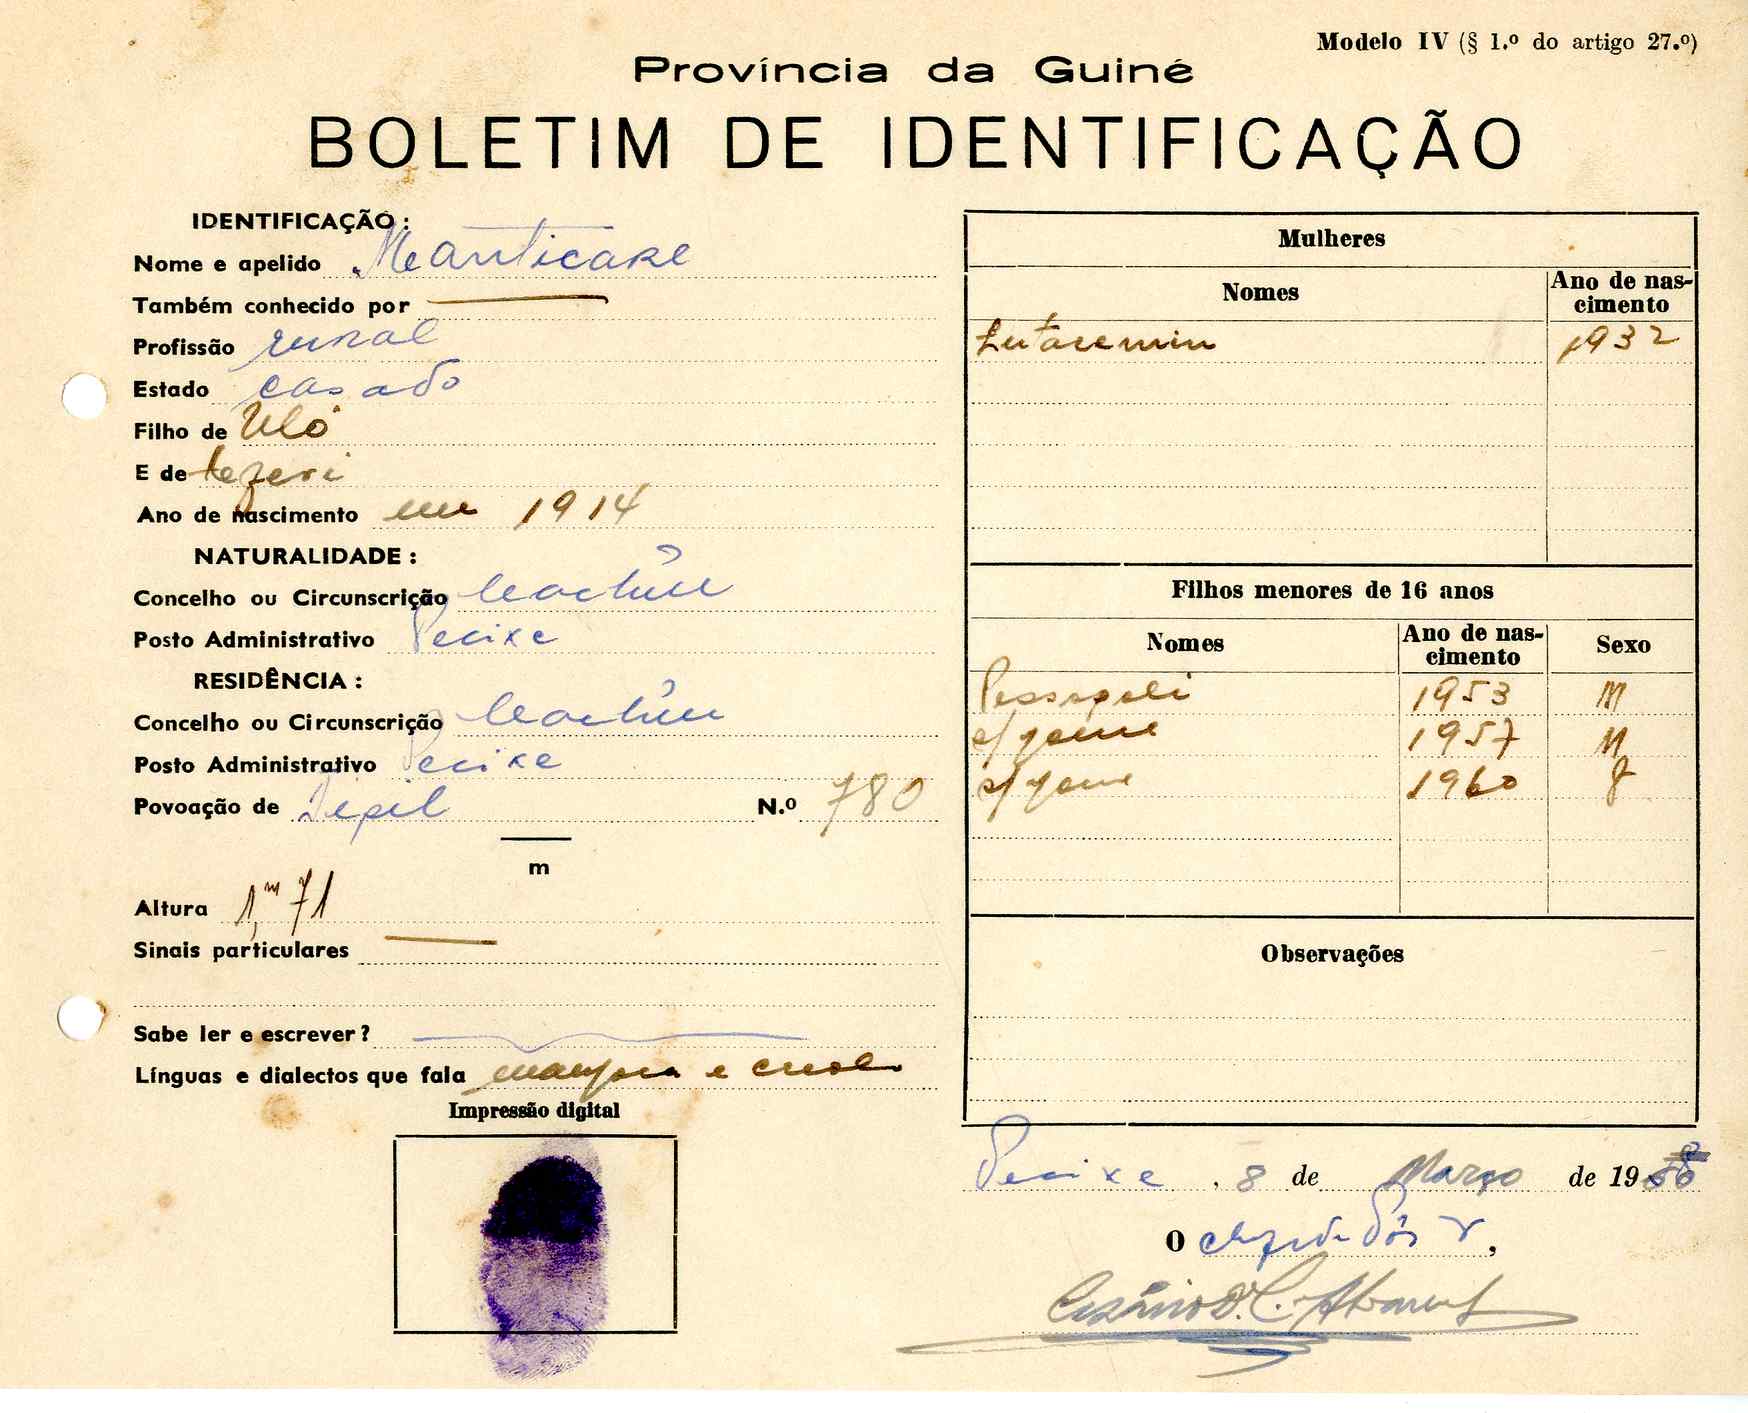 Modelo IV (§ 1.º do artigo 27.º)
Província da Guiné
BOLETIM DE IDENTIFICAÇÃO
IDENTIFICAÇÃO:
Nome e apelido Manticare
Também conhecido por
Profissão rural
Estado casado
Filho de Uló
E de
Ano de nascimento em 1914
NATURALIDADE:
Concelho ou Circunscrição Cachéu
Posto Administrativo Pecixe
RESIDÊNCIA:
Concelho ou Circunscrição Cachéu
Posto Administrativo Pecixe
Povoação de N.º 780
m
Altura 1,m71
Sinais particulares
Sabe ler e escrever?
Línguas e dialectos que fala e
Impressão digital
Mulheres
Nomes Ano de nas-
cimento
1932
Filhos menores de 16 anos
Nomes Ano de nas-
cimento Sexo
1953 M
1957 M
1960 f
Observações
Pecixe, 8 de Março de 19
O